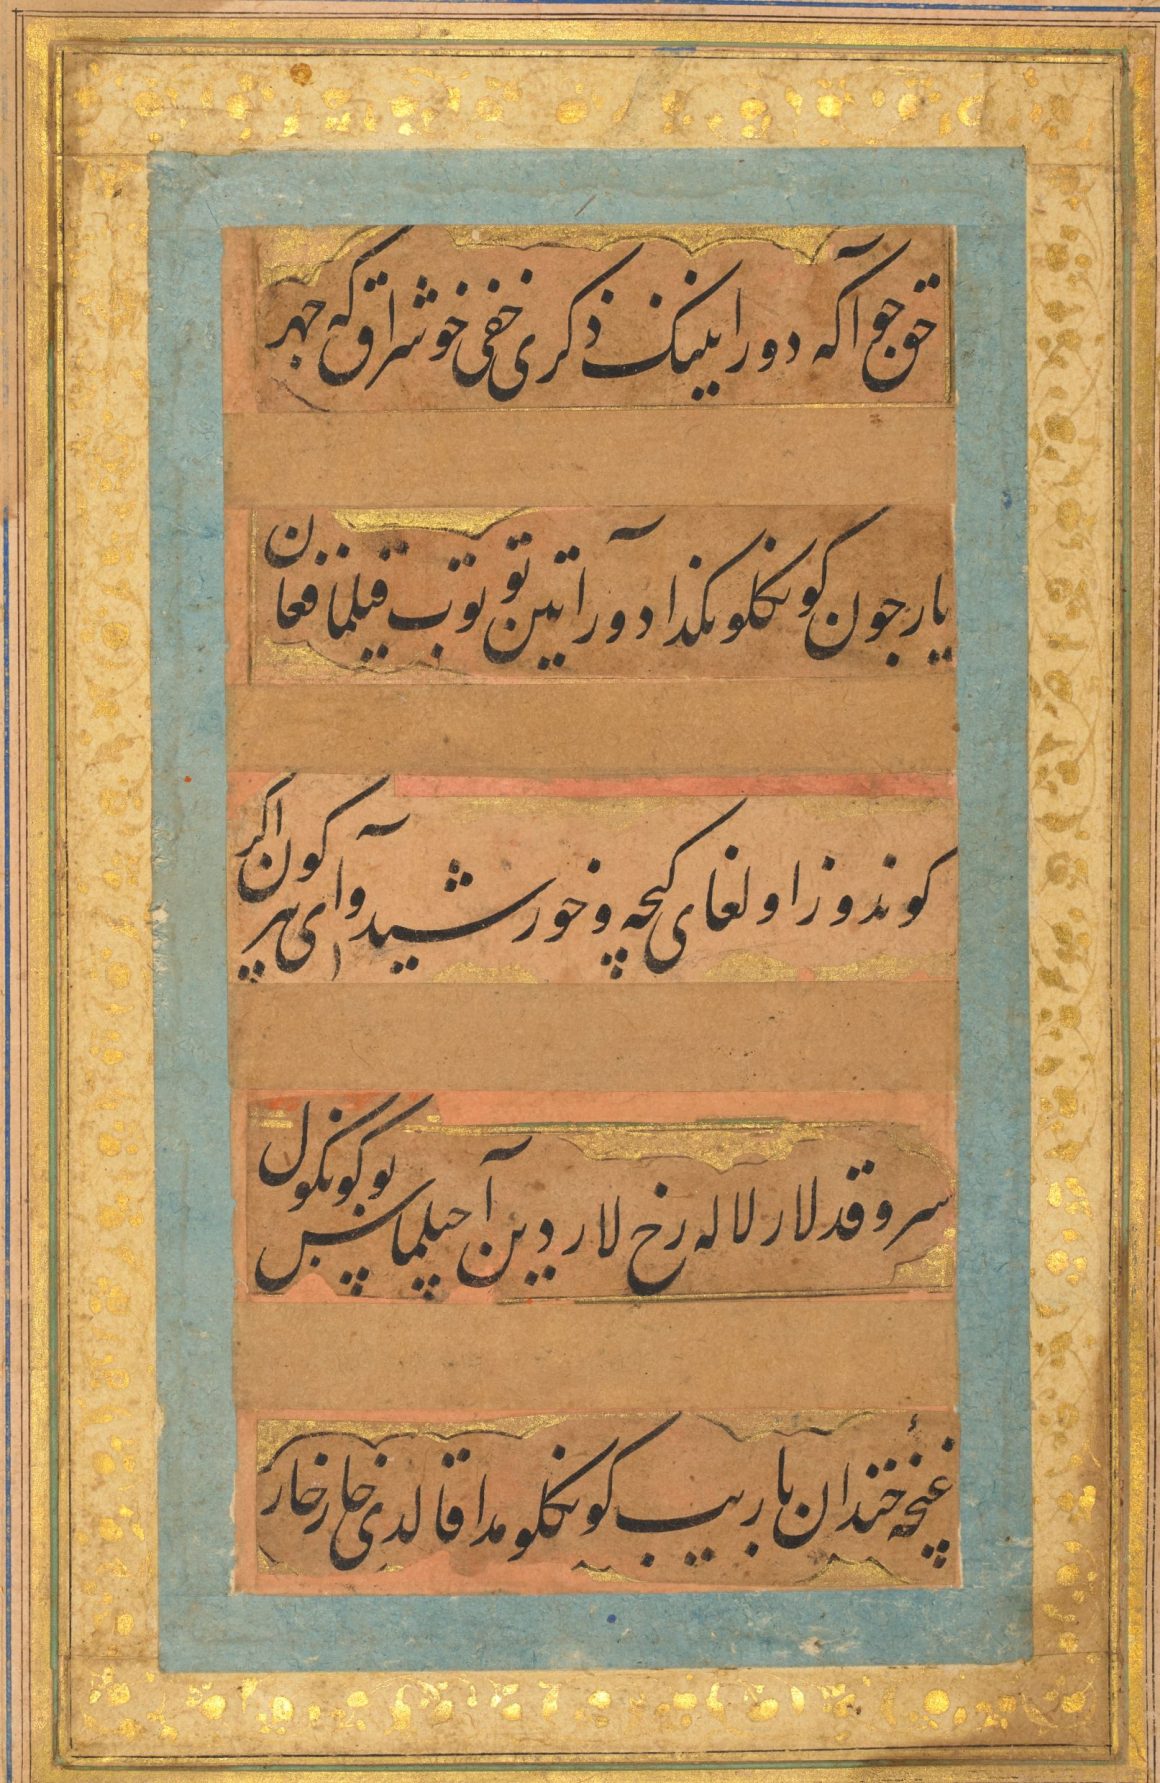 حق جو آکه دور انینک ذکری خفی خوشراق که جهر
یار چون کونکلونکدا دور آتین توتوب قیلما فغان
کوندوز اولغای کیجه چو خورشید آی کون اکر
سرو قد لار لاله رخ لار دین آچیلماس بو کونکول
غنچهٔ خندان باریب کونکلومدا قالدی خار خار